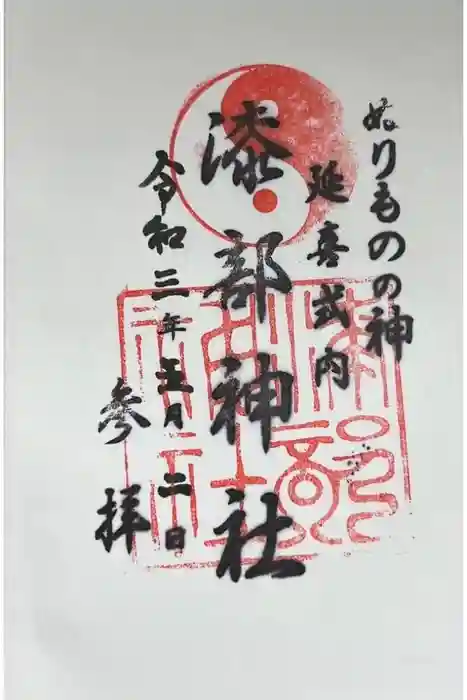 ぬりものの神
延喜式内
漆部神社
令和三年五月二日
参拝